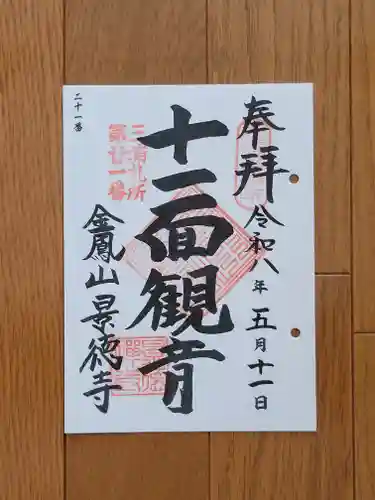 奉拝
令和八年五月十一日
十一面観音
三有札所
第廿一番
金鳳山景徳寺
二十一番